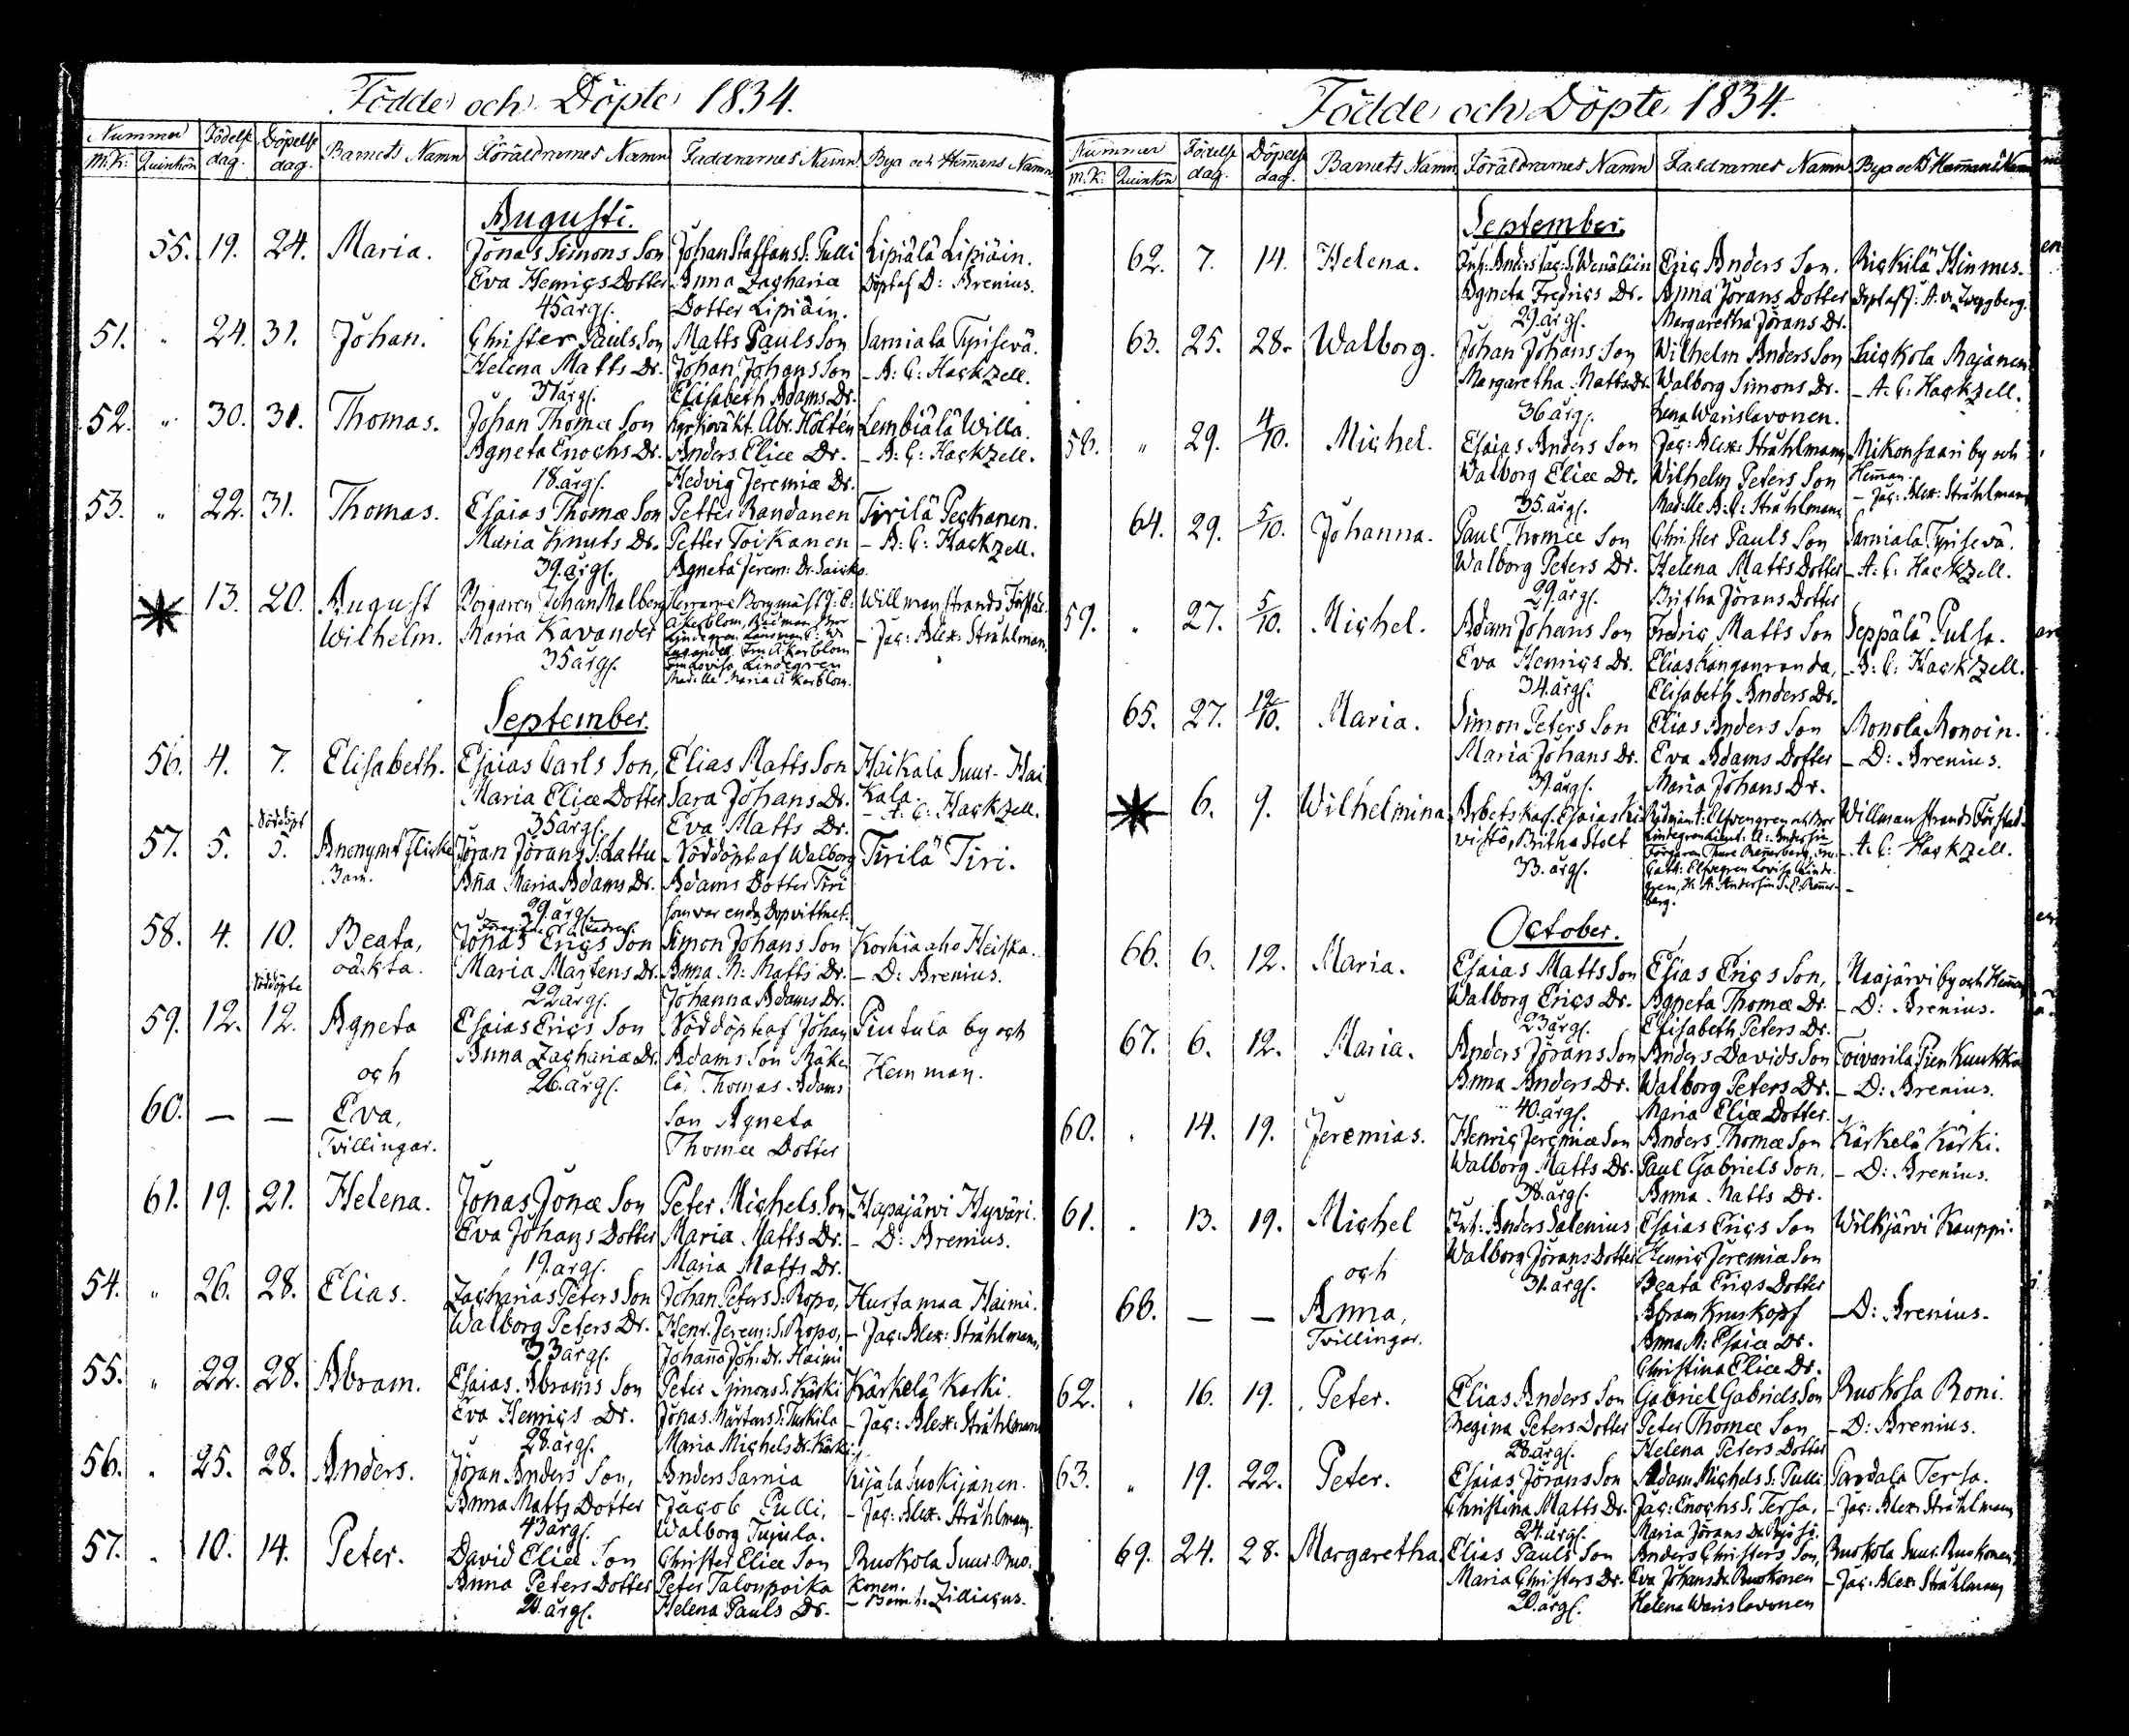 Födde och Döpte 1834.
Nummer Födelse dag. Döpelse dag. Barnets Namn Föräldrarnes Namn Faddrarnes Namn Bya och Hemans Namn
M.K: Quinkön
Augusti.
55. 19. 24. Maria. Jonas Simons Son Johan Staffans S: Pulli Lipiälä Lipiäin.
Eva Henrigs Dotter Anna Zacharia Döpt af D: Arenius.
45 årg. Dotter Lipiäin.
51. " 24. 31. Johan. Christer Pauls Son Matts Pauls Son Sarniala Tyrisevä.
Helena Matts Dr. Johan Johans Son – A: C: Hackzell.
37 årg. Elisabeth Adams Dr.
52. " 30. 31. Thomas. Johan Thomæ Son Abr. Holtén Lembiälä Willa.
Agneta Enochs Dr. Anders Eliæ Dr. – A: C: Hackzell.
18. årg. Hedvig Jeremiæ Dr.
53. " 22. 31. Thomas. Esaias Thomæ Son Petter Randanen Tirilä Peckanen.
Maria Knuts Dr. Petter Toikanen – A: C: Hackzell.
39. årg. Agneta Jerem: Dr. Saicko.
13. 20. August Borgaren Johan Malberg Herrarne Borgmäst J: E: Willmanstrands Förstad.
Wilhelm. Maria Kavander Åkerblom, Rådman Bror – Jac: Alex: Stråhlman.
35 årg. Lindegren
Lavander. Fru Åkerblom
Lovisa Lindegren
Mad:lle Maria Åkerblom.
September.
56. 4. 7. Elisabeth. Esaias Carls Son, Elias Matts Son Haikala Suur-Hai
Maria Eliæ Dotter Sara Johans Dr. kala.
35 årg. Eva Matts Dr. – A: C: Hackzell.
57. 5. Nöddöpt 5. Anonymt Flicke Jöran Jörans S: Lattu Nöddöpt af Walborg Tirilä Tiri.
Barn. Anna Maria Adams Dr. Adams Dotter Tiri
29. årg. som var enda Dopvittnet.
58. 4. 10. Beata, Jonas Erigs Son Simon Johans Son Korkiaaho Heiska.
oäkta. Maria Martens Dr. Anna M: Matts Dr. – D: Arenius.
22 årg. Johanna Adams Dr.
59. 12. Nöddöpte 12. Agneta Esaias Erigs Son Nöddöpte af Johan Piutula by och
och Anna Zachariæ Dr. Adams Son Räke Hemman.
26. årg. lä, Thomas Adams
60. — — Eva, Son Agneta
Tvillingar. Thomæ Dotter
61. 19. 21. Helena. Jonas Jonæ Son Peter Michels Son Hapajärvi Hyväri.
Eva Johans Dotter Maria Matts Dr. – D: Arenius.
19. årg. Maria Matts Dr.
54. " 26. 28. Elias. Zacharias Peters Son Johan Peters S: Ropo, Hurtamaa Haimi.
Walborg Peters Dr. Henr. Jerem: S: Ropo, – Jac: Alex: Stråhlman,
33 årg. Johanna Joh: Dr. Haimi
55. " 22. 28. Abram. Esaias Abrams Son Peter Simons S: Kärki Kärkelä Karki.
Eva Henrigs Dr. Jonas Mårtens S: Turkila – Jac: Alex: Stråhlman
28. årg. Maria Michels Dr. Kärki.
56. " 25. 28. Anders. Jöran Anders Son, Anders Sarnia Kijala Suokijanen.
Anna Matts Dotter Jacob Pulli, – Jac: Alex: Stråhlman.
43 årg. Walborg Tujula.
57. " 10. 14. Peter. David Eliæ Son Christer Eliæ Son Ruokola Suur Ruo-
Anna Peters Dotter Peter Talonpoika konen.
21. årg. Helena Pauls Dr. – Zilliacus.
Födde och Döpte 1834.
Nummer Födelse dag. Döpelse dag. Barnets Namn Föräldrarnes Namn Faddrarnes Namn Bya och Hemans Namn
M.K: Quinkön
September.
62. 7. 14. Helena. Inh: Anders Jac: S: Wenäläin Eric Anders Son. Rickilä Hinmes.
Agneta Fredrics Dr. Anna Jörans Dotter Döpt af J: A: v. Zweygberg.
29. årg. Margaretha Jörans Dr.
63. 25. 28. Walborg. Johan Johans Son Wilhelm Anders Son Saickola Rajanen.
Margaretha Matts Dr. Walborg Simons Dr. – A: C: Hackzell.
36 årg. Lena Warislavonen.
58. " 29. 4/10. Michel. Esaias Anders Son Jac: Alex: Stråhlmann, Mikonsaari by och
Walborg Eliæ Dr. Wilhelm Peters Son Heman.
35. årg. Mad:lle A: C: Stråhlman, – Jac: Alex: Stråhlman
64. 29. 5/10. Johanna. Paul Thomæ Son Christer Pauls Son Sarniala Tyrisevä.
Walborg Peters Dr. Helena Matts Dotter – A: C: Hackzell.
29. årg. Britha Jörans Dotter
59. " 27. 5/10. Michel. Adam Johans Son Fredric Matts Son Seppälä Pulsa.
Eva Henrigs Dr. Elias Kanganranda, – A: C: Hackzell.
34. årg. Elisabeth Anders Dr.
65. 27. 12/10. Maria. Simon Peters Son Elias Anders Son Monola Monoin.
Maria Johans Dr. Eva Adams Dotter – D: Arenius.
39. årg. Maria Johans Dr.
6. 9. Wilhelmina Arbets Karl. Esaias Ki- Rådmän: Elfvengren och Bror Willmanstrands Förstad.
vistö, Britha Stolt Lindegren – A: C: Hackzell.
33. årg. Färgaren Thure Rönnerberg, Fru
Cath: Elfvegren Lovisa Linde-
gren, Rönner-
berg.
October.
66. 6. 12. Maria. Esaias Matts Son Esaias Erigs Son, Haajärvi by och Heman
Walborg Erigs Dr. Agneta Thomæ Dr. – D: Arenius.
23 årg. Elisabeth Peters Dr.
67. 6. 12. Maria. Anders Jörans Son Anders Davids Son Toivarila Pien Kuukka
Anna Anders Dr. Walborg Peters Dr. – D: Arenius.
40. årg. Maria Eliæ Dotter.
60. " 14. 19. Jeremias. Henrig Jeremiæ Son Anders Thomæ Son Kärkelä Kärki.
Walborg Matts Dr. Paul Gabriels Son, – D: Arenius.
38. årg. Anna Matts Dr.
61. " 13. 19. Michel Inh: Anders Salenius Esaias Erigs Son Wilkjärvi Kauppi.
och Walborg Jörans Dotter Henrig Jeremiæ Son
31. årg. Beata Erigs Dotter
68. — — Anna, Abram Knuskopf — D: Arenius.
Tvillingar. Anna M: Esaiæ Dr.
Christina Eliæ Dr.
62. " 16. 19. Peter. Elias Anders Son Gabriel Gabriels Son Ruokosa Roni.
Regina Peters Dotter Peter Thomæ Son – D: Arenius.
28. årg. Helena Peters Dotter
63. " 19. 22. Peter. Esaias Jörans Son Adam Michels S: Pulli Pardala Tersa.
Christina Matts Dr. Jac: Enochs S: Tersa, – Jac: Alex: Stråhlman
24. årg. Maria Jörans Dr.
69. 24. 28. Margaretha Elias Pauls Son Anders Christers Son, Ruokola Suur-Ruokonen.
Maria Christers Dr. Eva Johans Dr. Ruokonen – Jac: Alex: Stråhlman
20. årg. Helena Warislavonen